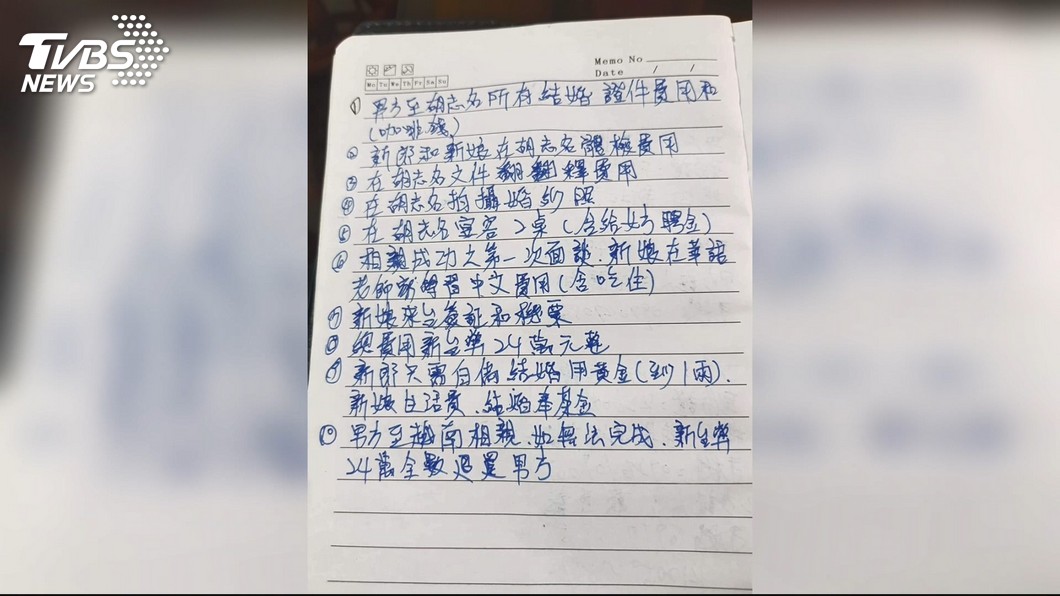 TVBS
NEWS
Memo No
Date / /
Mo Tu We Th Fr Sa Su
① 男方至胡志名所有結婚證件費用和
(咖啡錢)
② 新郎和新娘在胡志名體檢費用
③ 在胡志名文件翻譯費用
④ 在胡志名拍攝婚紗照
⑤ 在胡志名宴客2桌(含給女方聘金)
⑥ 相親成功之第一次面談、新娘在華語
老師部學習中文費用(含吃住)
⑦ 新娘來台簽証和機票
⑧ 總費用新台幣24萬元整
⑨ 新郎只需自備結婚用黃金(到1兩)、
新娘生活費、結婚基金
⑩ 男方至越南相親、如無法完成、新台幣
24萬全數退還男方